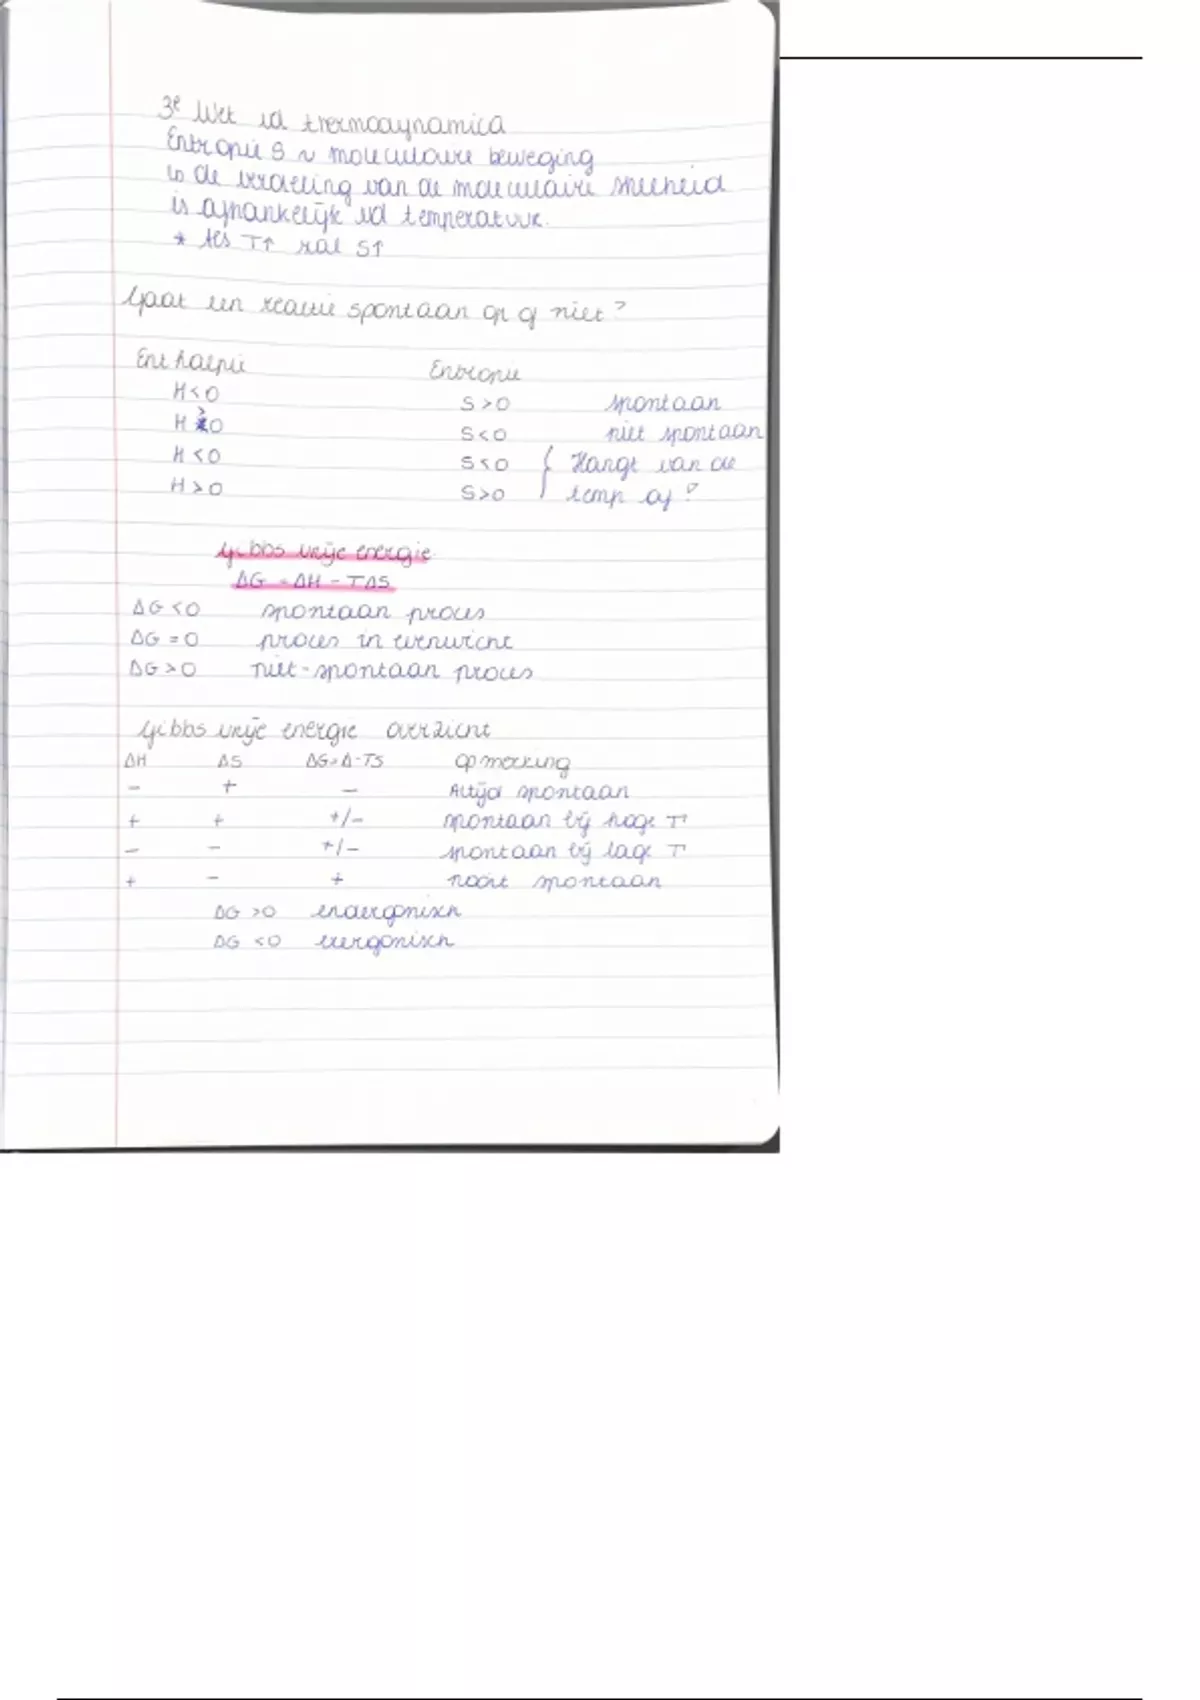 3e Wet vd thermodynamica
Entropie S ~ moleculaire beweging
↳ de verdeling van de moleculaire snelheid
is afhankelijk vd temperatuur.
* Als T↑ zal S↑
Gaat een reactie spontaan op of niet?
Enthalpie Entropie
H<0 S>0 spontaan
H>0 S<0 niet spontaan
H<0 S<0 { Hangt van de
H>0 S>0 temp af?
Gibbs vrije energie
ΔG = ΔH - TΔS
ΔG<0 spontaan proces
ΔG=0 proces in evenwicht
ΔG>0 niet-spontaan proces
Gibbs vrije energie overzicht
ΔH ΔS ΔG=Δ-TS opmerking
- + - Altijd spontaan
+ + +/- spontaan bij hoge T
- - +/- spontaan bij lage T
+ - + nooit spontaan
ΔG >0 endergonisch
ΔG <0 exergonisch